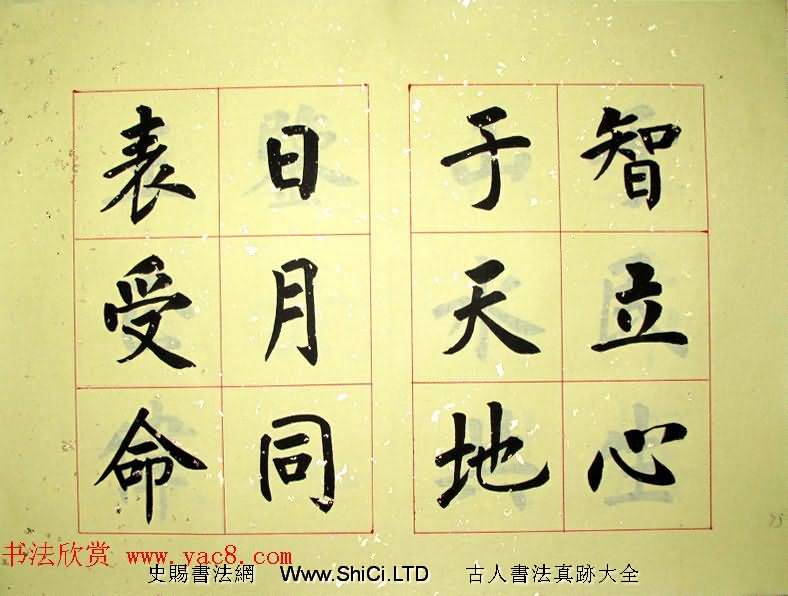 智立心
于天地
日月同
表受命
书法欣赏 www.yac8.com
史賜書法網 Www.ShiCi.LTD 古人書法真跡大全